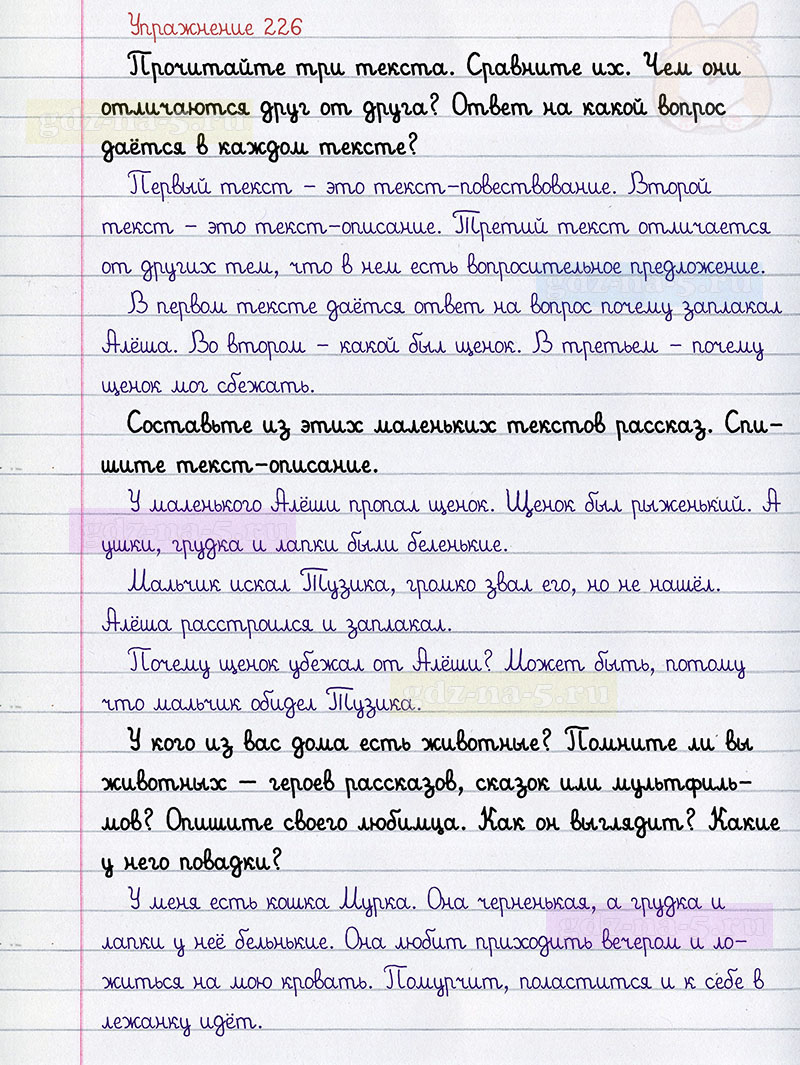 Упражнение 226
Прочитайте три текста. Сравните их. Чем они
отличаются друг от друга? Ответ на какой вопрос
gdz-na-5.ru
даётся в каждом тексте?
Первый текст – это текст-повествование. Второй
текст – это текст-описание. Третий текст отличается
от других тем, что в нем есть вопросительное предложение.
gdz-na-5.ru
В первом тексте даётся ответ на вопрос почему заплакал
Алёша. Во втором – какой был щенок. В третьем – почему
щенок мог сбежать.
Составьте из этих маленьких текстов рассказ. Спи-
шите текст-описание.
У маленького Алёши пропал щенок. Щенок был рыженький. А
gdz-na-5.ru
ушки, грудка и лапки были беленькие.
Мальчик искал Тузика, громко звал его, но не нашёл.
Алёша расстроился и заплакал.
Почему щенок убежал от Алёши? Может быть, потому
gdz-na-5.ru
что мальчик обидел Тузика.
У кого из вас дома есть животные? Помните ли вы
животных — героев рассказов, сказок или мультфиль-
мов? Опишите своего любимца. Как он выглядит? Какие
у него повадки?
У меня есть кошка Мурка. Она черненькая, а грудка и
gdz-na-5.ru
лапки у неё бельнькие. Она любит приходить вечером и ло-
житься на мою кровать. Помурчит, поластится и к себе в
лежанку идёт.